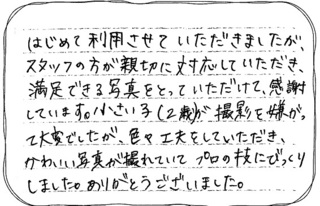 はじめて利用させていただきましたが、
スタッフの方が親切に対応していただき、
満足できる写真をとっていただけて、感謝
しています。小さい子(2歳)が撮影を嫌がっ
て大変でしたが、色々工夫をしていただき、
かわいい写真が撮れていてプロの技にびっくり
しました。ありがとうございました。